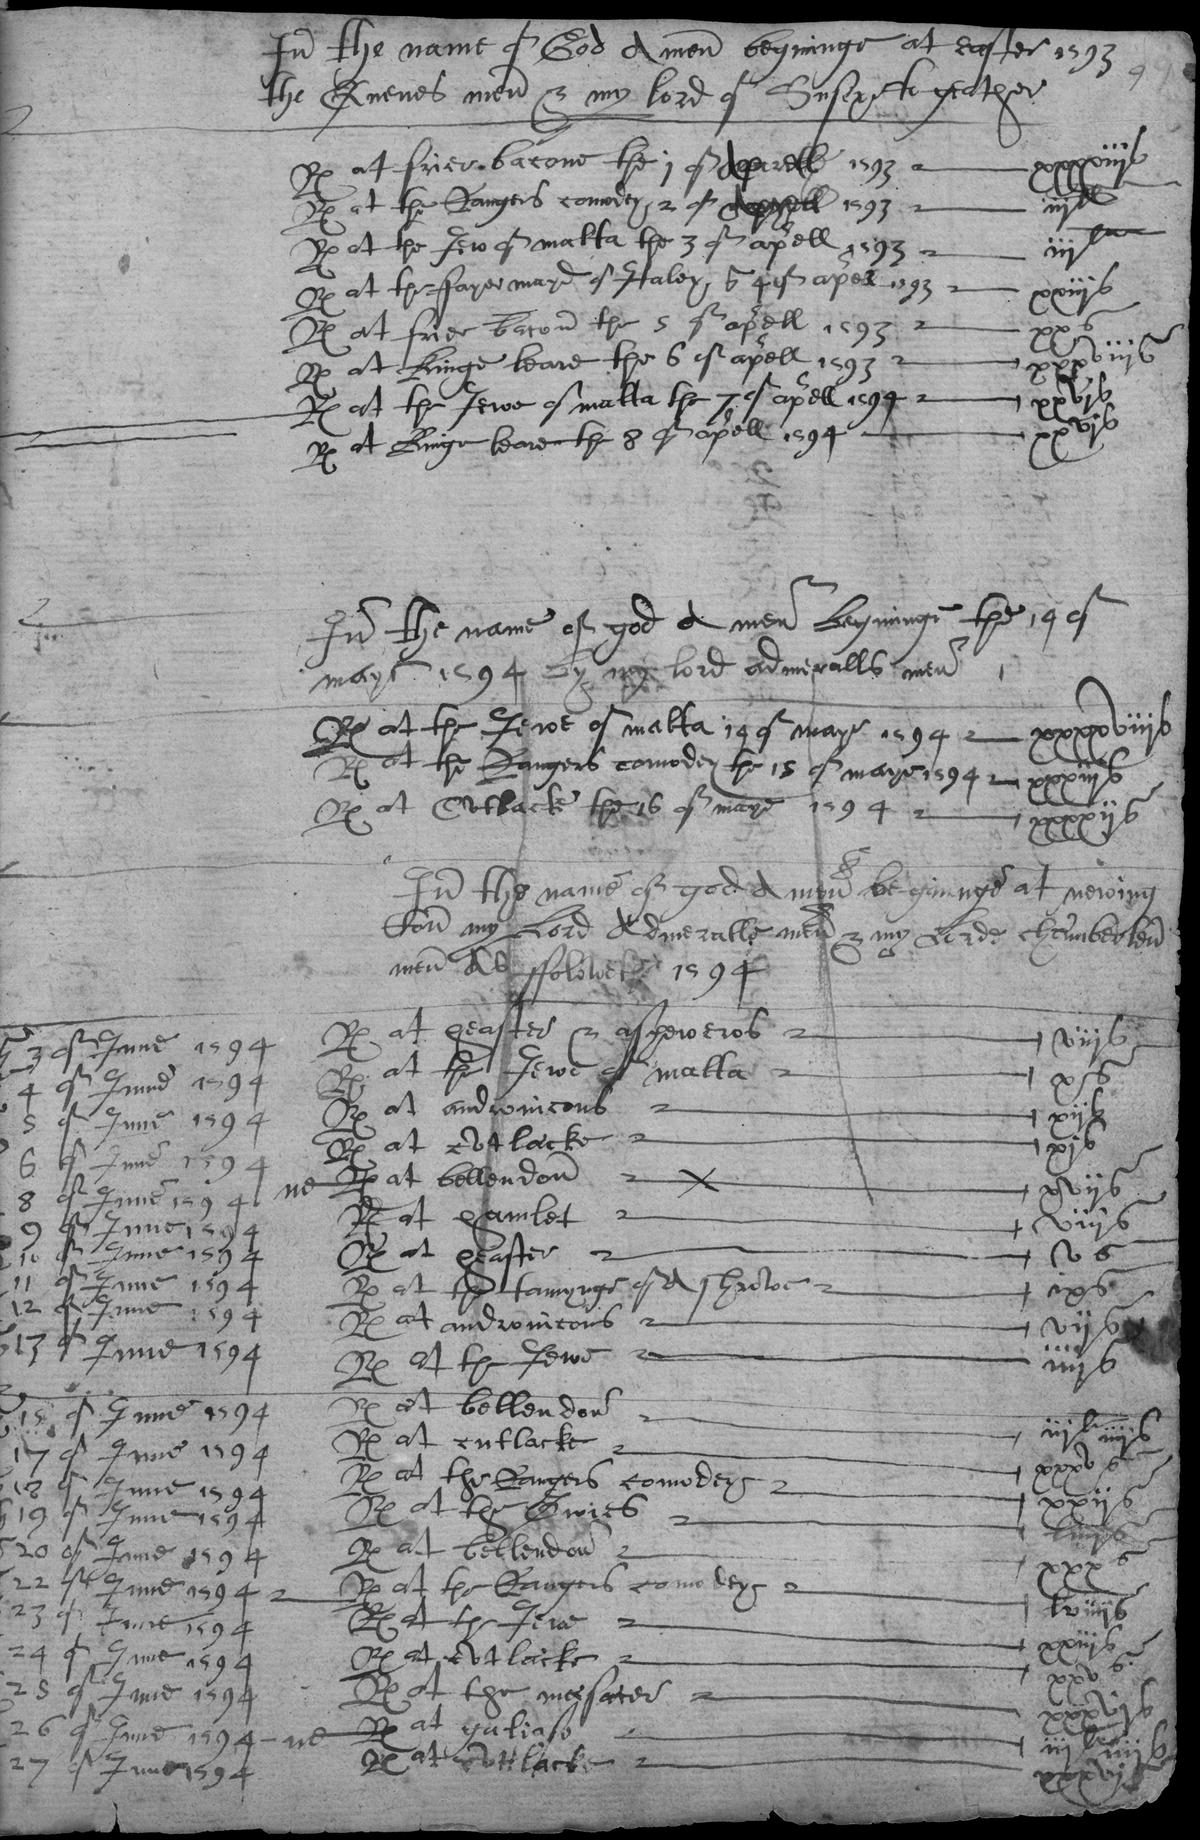 In the name of God Amen begininge at easter 1593
the Quenes men & my lord of Susexe to geather
Rd at frier bacone the 1 of aprell 1593 — xxxxiijs
Rd at the Rangers comodey 2 of aprell 1593 — iijll
Rd at the Jew of malta the 3 of aprell 1593 — iijll
Rd at the fayer mayd of Italey the 4 of aprell 1593 — xxiijs
Rd at frier bacon the 5 of aprell 1593 — xxs
Rd at Kinge leare the 6 of aprell 1593 — xxxviijs
Rd at the Jewe of malta the 7 of aprell 1594 — xxvjs
Rd at Kinge leare the 8 of aprell 1594 — xxvjs
In the name of god Amen begininge the 14 of
maye 1594 by my lord admeralls men
Rd at the Jewe of malta 14 of maye 1594 — xxxxviijs
Rd at the Rangers comodey the 15 of maye 1594 — xxxiijs
Rd at Cutlacke the 16 of maye 1594 — xxxxijs
In the name of god Amen begininge at newing
ton my Lord Admeralle men & my Lorde chamberlen
men As ffolowethe 1594
3 of June 1594 Rd at heaster & asheweros — viijs
4 of June 1594 Rd at the Jewe of malta — xs
5 of June 1594 Rd at andronicous — xijs
6 of June 1594 Rd at cutlacke — xjs
8 of June 1594 ne Rd at bellendon — xvijs
9 of June 1594 Rd at hamlet — viijs
10 of June 1594 Rd at heaster — vs
11 of June 1594 Rd at the tamynge of A Shrowe — ixs
12 of June 1594 Rd at andronicous — vijs
13 of June 1594 Rd at the Jewe — iiijs
15 of June 1594 Rd at bellendon — iijll iiijs
17 of June 1594 Rd at cutlacke — xxxvs
18 of June 1594 Rd at the Rangers comodey — xxijs
19 of June 1594 Rd at the Gwies — liiijs
20 of June 1594 Rd at bellendon — xxxs
22 of June 1594 — Rd at the Rangers comodey — lviiijs
23 of June 1594 Rd at the Jewe — xxiijs
24 of June 1594 Rd at cutlacke — xxvs
25 of June 1594 Rd at the masacer — xxxvjs
26 of June 1594 — ne — Rd at galiaso — iijll iiijs
27 of June 1594 Rd at cuttlacke — xxxvjs